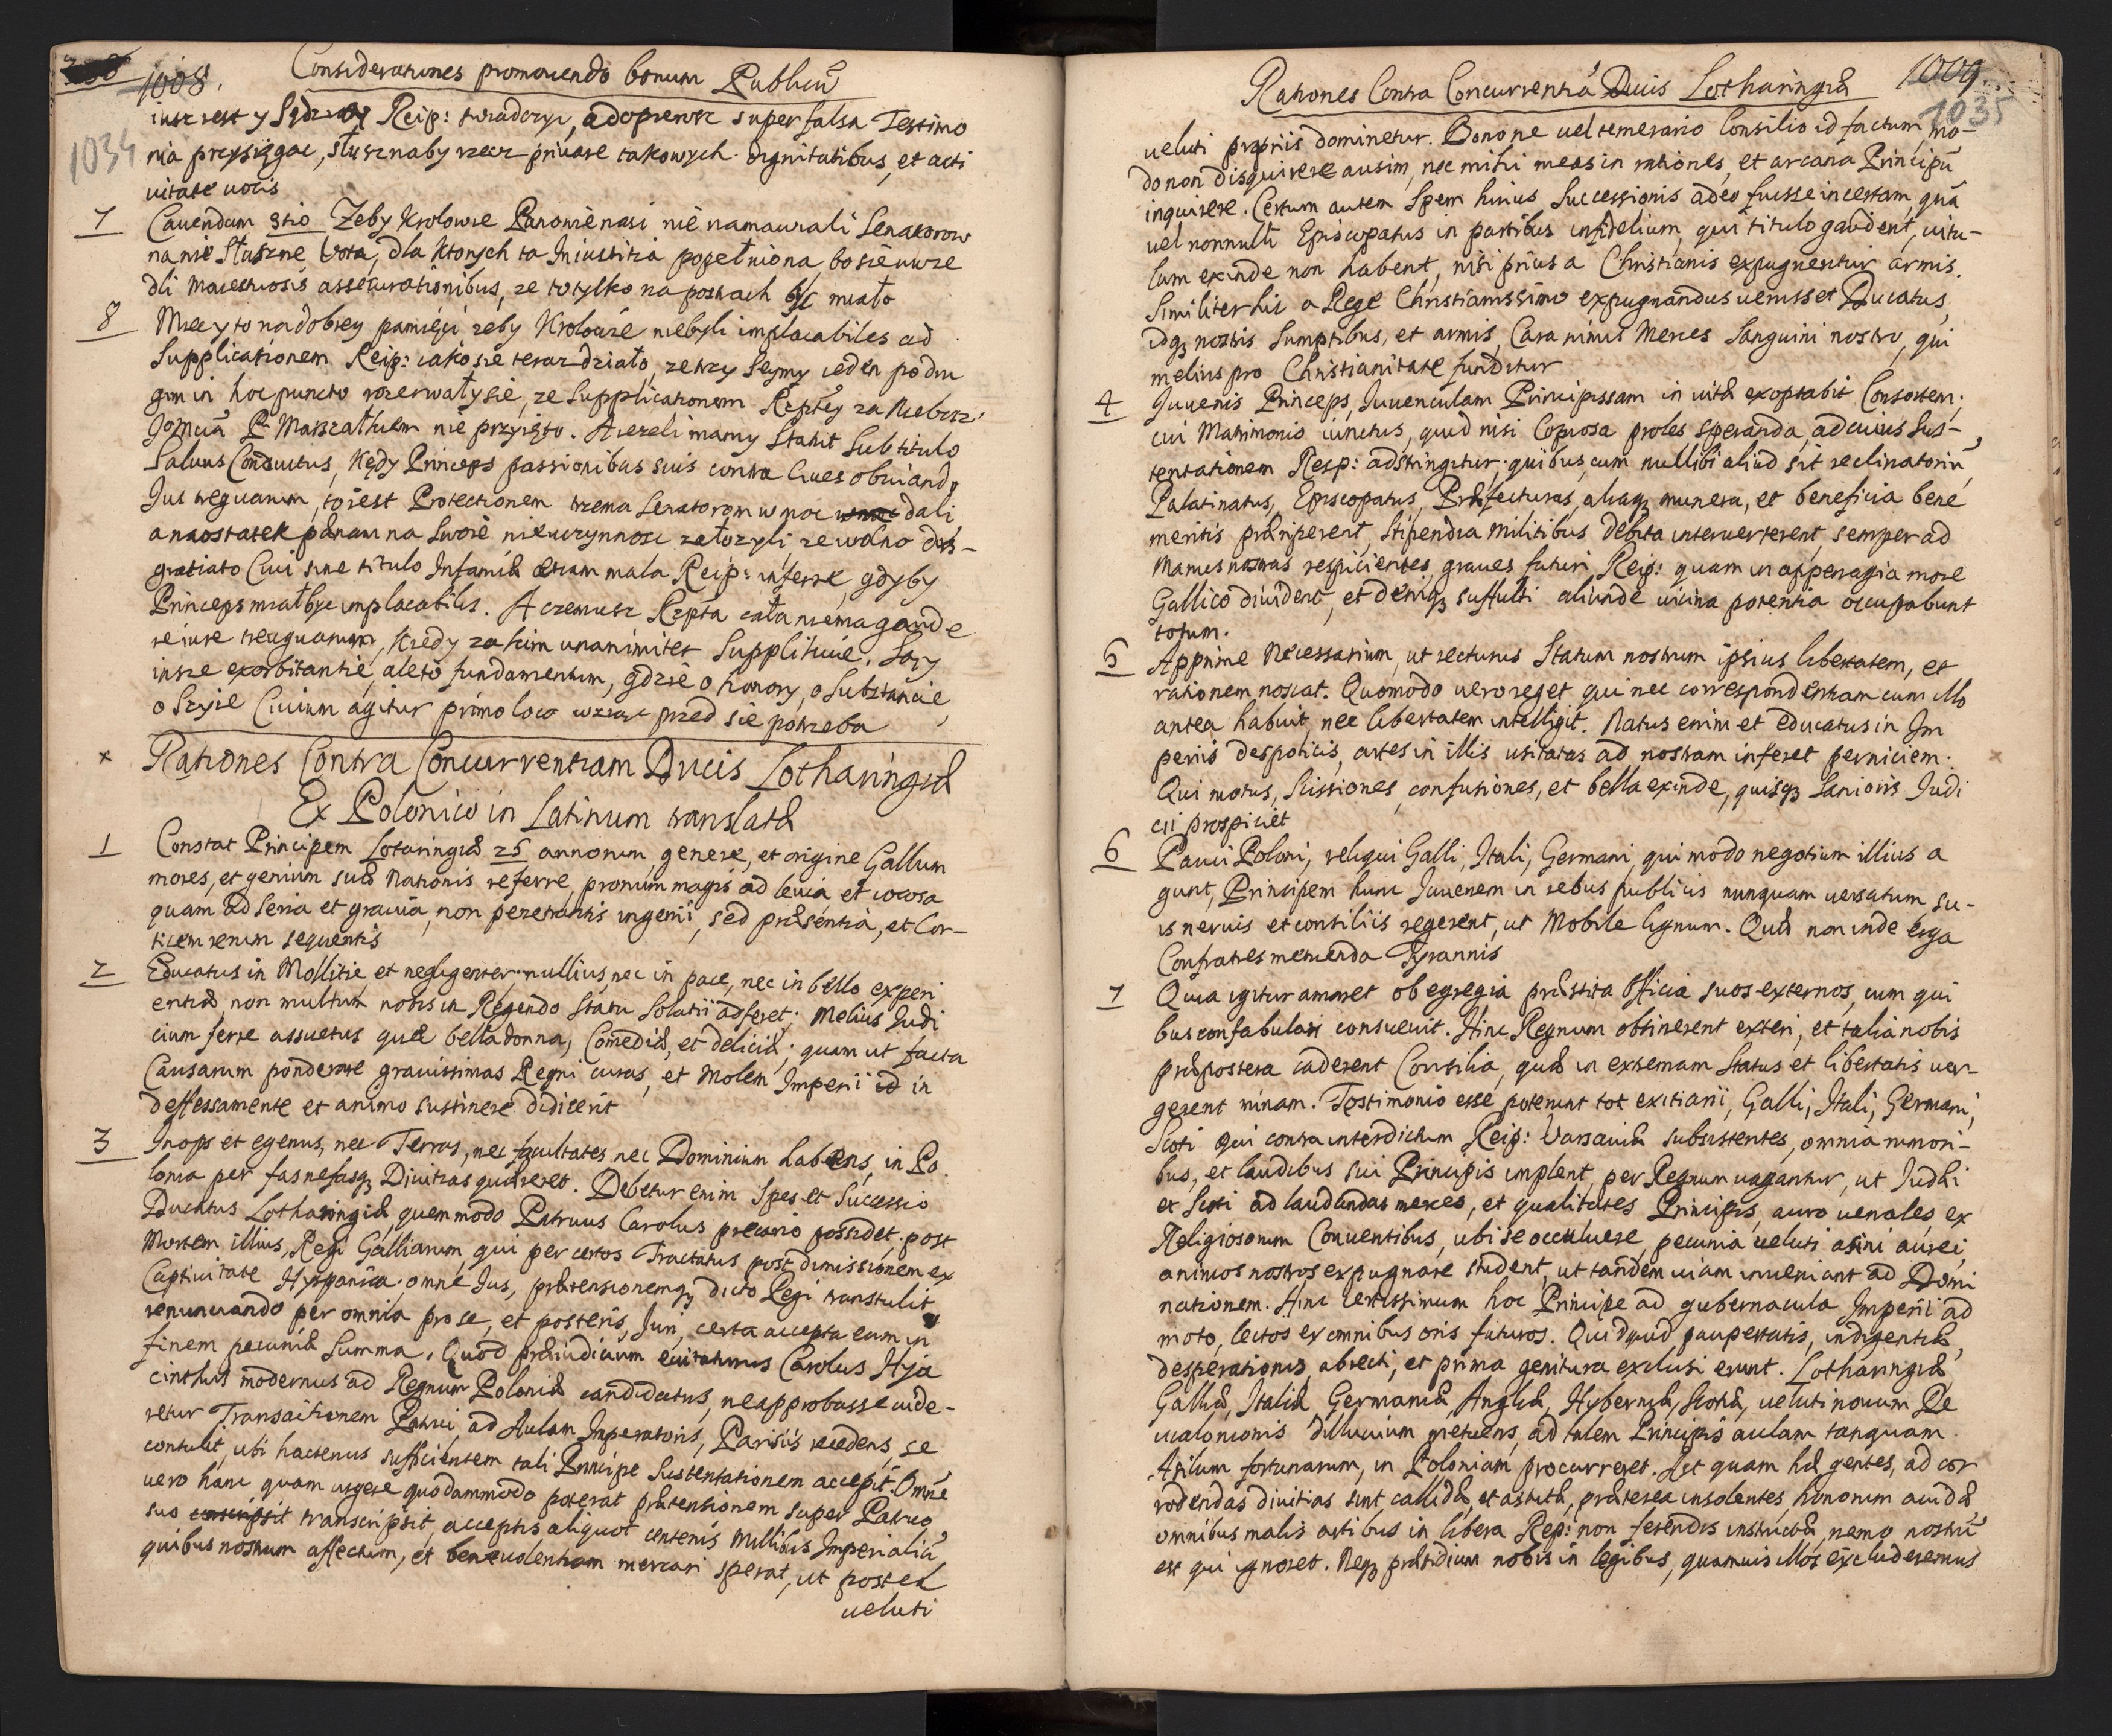 1008.
1034
Considerationes promouendo bonum Publicũ
iusz iest y Sędziow Reip: swiadczyc, adopierosz super falsa Testimo
nia przysięgac, słusznaby rzecz priuare takowych dignitatibus, et acti
uitate uocis
7 Cauendum 3tio Zeby Krolowie Panowie nasi nie namawiali Senatorow
na nie słuszne Vota, dla ktorych ta Iniustitia popełniona, bo sie uwie
dli Maiestuosis assecurationibus, ze to tylko na postrach być miało
8 Miec y to na dobrey pamięci zeby Krolowie niebyli implacabiles ad
Supplicationem Reip: iako sie teraz działo, ze trzy Seymy ieden po dru
gim in hoc puncto rozerwały sie, ze Supplicationem Rzptey za Nieboszc:
Jomcią P. Marszałkiem nie przyięto. A iezeli mamy Statut Sub titulo
Saluus Conductus, Kędy Princeps passionibus suis contra Ciues obuiando
Jus treguarum, to iest Protectionem trzema Senatorom w moc dali,
a naostatek pœnam na swoie nieuczynnosc załozyli, ze wolno dis-
gratiato Ciui sine titulo Infamiæ etiam mala Reip: inferre, gdyby
Princeps miał byc implacabilis. A czemusz Rzpta cała niema gaude
re iure treuguarum, kiedy za kim unanimiter Supplikuie. Są y
insze exorbitantie, ale to fundamentum, gdzie o honory, o Substancie,
o Szyie Ciuium agitur primo loco wziąc przed sie potrzeba
x Rationes Contra Concurrentiam Ducis Lotharingiæ
Ex Polonico in Latinum translatæ
1 Constat Principem Lotaringiæ 25 annorum genere, et origine Gallum
mores, et genium suæ Nationis referre, pronum magis ad leuia, et iocosa
quam ad seria et grauia, non penetrantis ingenii, sed præsentia, et Cor-
ticem rerum sequentis
2 Educatus in Mollitie, et negligenter, nullius, nec in pace, nec in bello experi
entiæ, non multum nobis in Regendo Statu Solatii adferet; Melius Judi
cium ferre assuetus quæ bella donna, Comediæ, et deliciæ; quam ut facta
Causarum ponderare grauissimas Regni curas, et Molem Imperii id in
deffessa mente et animo sustinere didicerit
3 Inops et egenus, nec Terras, nec facultates nec Dominium habens, in Po.
lonia per fas nefasqꝫ Diuitias quæreret. Debetur enim Spes et Successio
Ducatus Lotharingiæ, quem modo Patruus Carolus precario possidet post
Mortem illius, Regi Galliarum, qui per certos Tractatus post dimissionem ex
Captiuitate Hyspanica, omne Jus, prætensionemqꝫ dicto Regi transtulit
renunciando per omnia pro se, et posteris, Juri, certa accepta eum in
finem pecuniæ Summa. Quod præiudicium euitaturus Carolus Hya
cinthus modernus ad Regnum Poloniæ candidatus, ne approbasse uide-
retur Transactionem Patrui, ad Aulam Imperatoris, Parisiis recedens, se
contulit, ubi hactenus sufficientem tali Principe Sustentationem accepit. Omnẽ
uero hanc quam urgere quodammodo poterat prætensionem super Patruo
suo transcripsit, acceptis aliquot centenis Millibus Imperialiũ,
quibus nostrum affectum, et beneuolentiam mercari sperat, ut postea
ueluti
Rationes Contra Concurrentiã Ducis Lotharingiæ
1009.
1035
ueluti propriis dominetur. Bono ne uel temerario Consilio id factum, mo-
do non disquirere ausim, nec mihi meas in rationes, et arcana Principũ
inquirere. Certum autem Spem huius Successionis adeo fuisse incertam, quã
uel nonnulli Episcopatus in partibus infidelium, qui titulo gaudent, uitu-
lum exinde non habent, nisi prius a Christianis expugnentur armis.
Similiter hic a Rege Christianissimo expugnandus uenisset Ducatus,
idqꝫ nostris Sumptibus, et armis, Cara nimis Merces Sanguini nostro, qui
melius pro Christianitate funditur
4 Juuenis Princeps, Juuenculam Principissam in uitæ exoptabit Consortem;
cui Matrimonio iunctus, quid nisi Copiosa proles speranda, ad cuius Sus-
tentationem Resp: adstringitur; quibus, cum nullibi aliud sit reclinatoriũ,
Palatinatus, Episcopatus, Præfecturas, aliaqꝫ munera, et beneficia bene
meritis præriperent, Stipendia Militibus debita interuerterent, semper ad
Manus nostras respicientes graues futuri Reip: quam in appenagia more
Gallico diuident, et deniqꝫ suffulti aliunde uicina potentia occupabunt
totum.
5 Apprime Necessarium, ut recturus Statum nostrum ipsius libertatem, et
rationem noscat. Quomodo uero reget, qui nec correspondentiam cum illo
antea habuit, nec libertatem intelligit. Natus enim et educatus in Im
periis despoticis, artes in illis usitatas ad nostram inferet perniciem.
Qui motus, Scissiones, confusiones, et bella exinde, quisqꝫ Sanioris Judi
cii prospiciet
6 Pauci Poloni, reliqui Galli, Itali, Germani, qui modo negotium illius a
gunt, Principem hunc Juuenem in rebus publicis nunquam uersatum su-
is neruis et consiliis regerent, ut Mobile lignum. Quæ non inde erga
Confratres metuenda Tyrannis
7 Quia igitur amaret ob egregia præstita Officia suos externos, cum qui
bus confabulari consueuit. Hinc Regnum obtinerent exteri, et talia nobis
præpostera caderent Consilia, quæ in extremam Status et libertatis uer-
gerent ruinam. Testimonio esse poterunt tot exitiarii, Galli, Itali, Germani,
Scoti qui contra interdictum Reip: Varsauiæ subsistentes, omnia rumori-
bus, et laudibus sui Principis implent, per Regnum uagantur, ut Judæi
et Scoti ad laudandas merces, et qualitates Principis, auro uenales, ex
Religiosorum Conuentibus, ubi se occuluere, pecunia ueluti asini aurei,
animos nostros expugnare student, ut tandem uiam inueniant ad Domi
nationem. Hinc certissimum hoc Principe ad gubernacula Imperii ad
moto, lectos ex omnibus oris futuros. Quidquid paupertatis, indigentiæ,
desperationis, abiecti, et prima genitura exclusi erunt. Lotharingiæ,
Galliæ, Italiæ Germaniæ, Angliæ, Hyberniæ, Scotiæ, ueluti nouum De
ucalonionis Dilluuium metuens, ad talem Principis aulam tanquam
Asilum fortunarum, in Poloniam procurreret. Ast quam hæ gentes, ad cor
rodendas diuitias sint callidæ, et astutæ, præterea insolentes, honorum auidæ
omnibus malis artibus in libera Rep: non ferendis instructæ, nemo nostrũ
est qui ignoret. Neqꝫ præsidium nobis in legibus, quamuis illos excluderemus